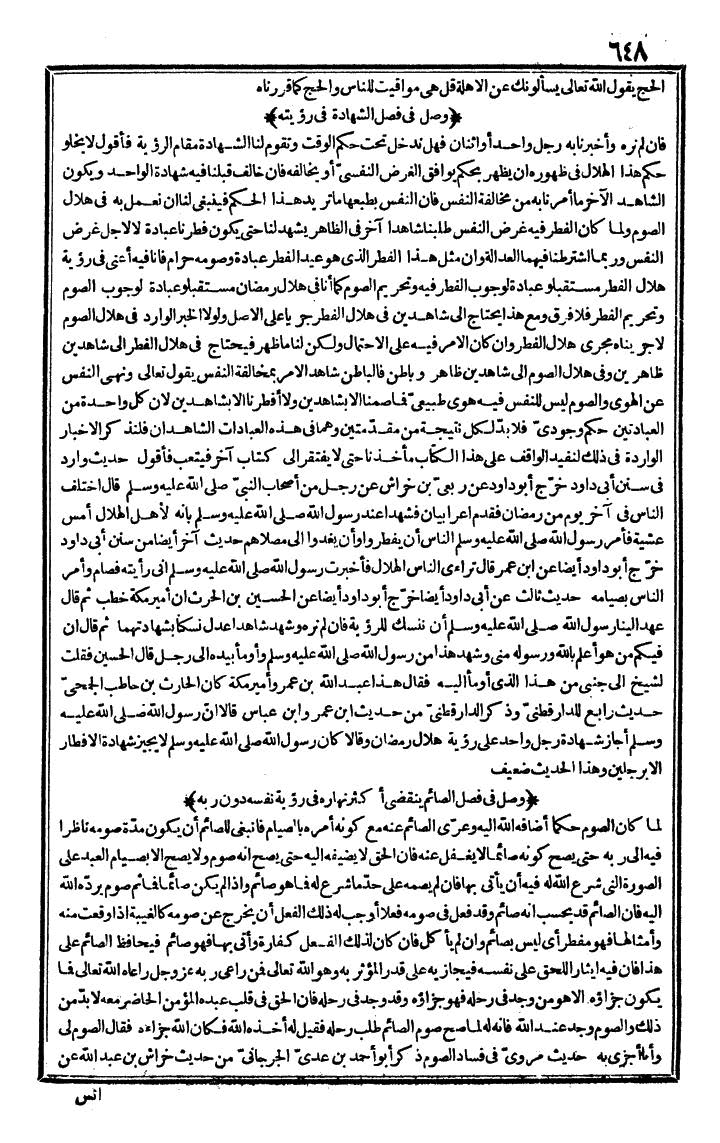 ٦٤٨
الحج يقول الله تعالى يسألونك عن الاهلة قل هى مواقيت للناس والحج كما قررناه
﴿وصل فى فصل الشهادة فى رؤيته﴾
فان لم نره وأخبرنا به رجل واحد أو اثنان فهل ندخل تحت حكم الوقت وتقوم لنا الشهادة مقام الرؤية فأقول لا يخلو
حكم هذا الهلال فى ظهوره ان يظهر بحكم يوافق الغرض النفسىّ أو يخالفه فان خالف قبلنا فيه شهادة الواحد ويكون
الشاهد الآخر ما أمرنا به من مخالفة النفس فان النفس بطبعها ما تريد هذا الحكم فينبغى لنا ان نعمل به فى هلال
الصوم ولما كان الفطر فيه غرض النفس طلبنا شاهدا آخر فى الظاهر يشهد لنا حتى يكون فطرنا عبادة لا لاجل غرض
النفس وربما اشترطنا فيهما العدالة وان مثل هذا الفطر الذى هو عيد الفطر عبادة وصومه حرام فانا فيه أعنى فى رؤية
هلال الفطر مستقبلو عبادة لوجوب الفطر فيه وتحريم الصوم كما أنا فى هلال رمضان مستقبلو عبادة لوجوب الصوم
وتحريم الفطر فلا فرق ومع هذا يحتاج الى شاهدين فى هلال الفطر جريا على الاصل ولولا الخبر الوارد فى هلال الصوم
لاجريناه مجرى هلال الفطر وان كان الامر فيه على الاحتمال ولكن لنا ما ظهر فيحتاج فى هلال الفطر الى شاهدين
ظاهرين وفى هلال الصوم الى شاهدين ظاهر وباطن فالباطن شاهد الامر بمخالفة النفس يقول تعالى ونهى النفس
عن الهوى والصوم ليس للنفس فيه هوى طبيعىّ فاصمنا الا بشاهدين ولا أفطرنا الا بشاهدين لان كل واحدة من
العبادتين حكم وجودىّ فلا بدّ لكل نتيجة من مقدّمتين وهما فى هذه العبادات الشاهدان فلنذكر الاخبار
الواردة فى ذلك لنفيد الواقف على هذا الكتاب مأخذنا حتى لا يفتقر الى كتاب آخر فيتعب فأقول حديث وارد
فى سنن أبى داود خرّج أبو داود عن ربعىّ بن خراش عن رجل من أصحاب النبىّ صلى الله عليه وسلم قال اختلف
الناس فى آخر يوم من رمضان فقدم اعرابيان فشهدا عند رسول الله صلى الله عليه وسلم بانه لأهل الهلال أمس
عشية فأمر رسول الله صلى الله عليه وسلم الناس أن يفطروا وأن يغدوا الى مصلاهم حديث آخر أيضا من سنن أبى داود
خرّج أبو داود أيضا عن ابن عمر قال تراءى الناس الهلال فأخبرت رسول الله صلى الله عليه وسلم انى رأيته فصام وأمر
الناس بصيامه حديث ثالث عن أبى داود أيضا خرّج أبو داود أيضا عن الحسين بن الحرث ان أمير مكة خطب ثم قال
عهد الينا رسول الله صلى الله عليه وسلم أن ننسك للرؤية فان لم نره وشهد شاهدا عدل نسكنا بشهادتهما ثم قال ان
فيكم من هو أعلم بالله ورسوله منى وشهد هذا من رسول الله صلى الله عليه وسلم وأومأ بيده الى رجل قال الحسين فقلت
لشيخ الى جنبى من هذا الذى أومأ اليه فقال هذا عبد الله بن عمر وأمير مكة كان الحارث بن حاطب الجمحىّ
حديث رابع للدارقطنىّ وذكر الدارقطنىّ من حديث ابن عمر وابن عباس قالا انّ رسول الله صلى الله عليه
وسلم أجاز شهادة رجل واحد على رؤية هلال رمضان وقالا كان رسول الله صلى الله عليه وسلم لا يجيز شهادة الافطار
الا برجلين وهذا الحديث ضعيف
﴿وصل فى فصل الصائم ينقضى أكثر نهاره فى رؤية نفسه دون ربه﴾
لما كان الصوم حكما أضافه الله اليه وعرّى الصائم عنه مع كونه أمره بالصيام فانبغى للصائم أن يكون مدّة صومه ناظرا
فيه الى ربه حتى يصح كونه صائما لا يغفل عنه فان الحق لا يضيفه اليه حتى يصح انه صوم ولا يصح الا بصيام العبد على
الصورة التى شرع الله له فيه أن يأتى بها فان لم يصمه على حدّ ما شرع له فما هو صائم واذا لم يكن صائما فما ثم صوم يردّه الله
اليه فان الصائم قد يحسب انه صائم وقد فعل فى صومه فعلا أوجب له ذلك الفعل أن يخرج عن صومه كالغيبة اذا وقعت منه
وأمثالها فهو مفطر أى ليس بصائم وان لم يأكل فان كان لذلك الفعل كفارة وأتى بها فهو صائم فيحافظ الصائم على
هذا فان فيه ايثار الحق على نفسه فيجازيه على قدر المؤثر به وهو الله تعالى فمن راعى ربه عز وجل راعاه الله تعالى فما
يكون جزاؤه الا هو من وجد فى رحله فهو جزاؤه وقد وجد فى رحله فان الحق فى قلب عبده المؤمن الحاضر معه لا بدّ من
ذلك والصوم وجد عند الله فانه له لما صح صوم الصائم طلب رحله فقيل له أخذه الله فكان الله جزاءه فقال الصوم لى
وأنا أجزى به حديث مروىّ فى فساد الصوم ذكر أبو أحمد بن عدىّ الجرجانىّ من حديث خراش بن عبد الله عن
انس